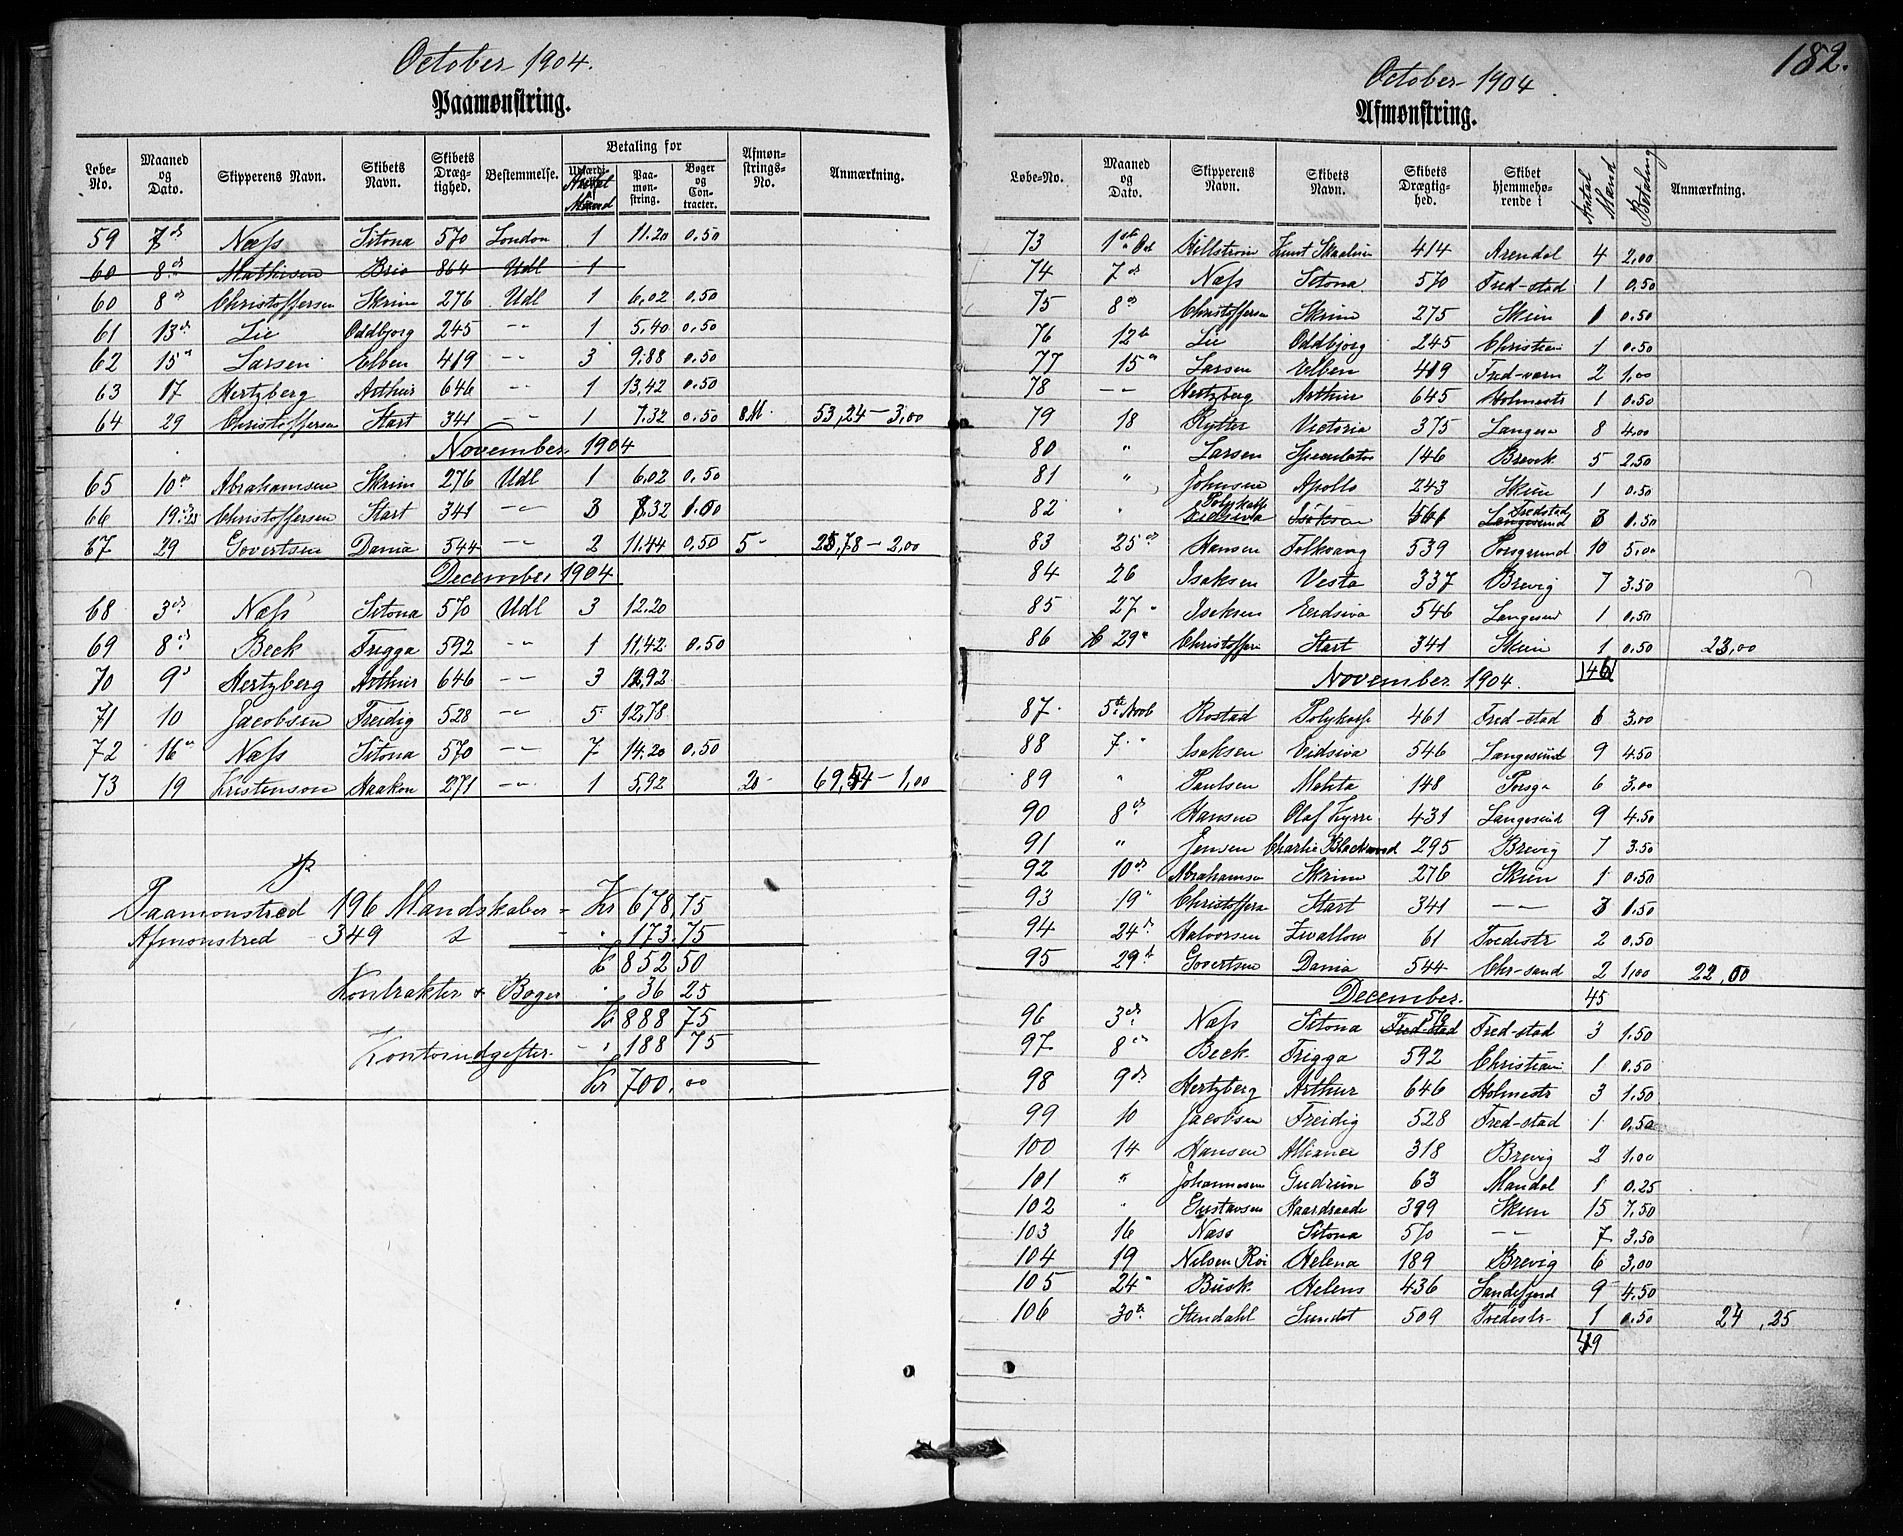 October 1904.
Paamønstring.
Løbe-No. Maaned og Dato. Skipperens Navn. Skibets Navn. Skibets Dræg-tighed. Bestemmelse. Betaling for Antal Mand Paa-møn-string. Bøger og Con-tracter. Afmøn-strings-No. Anmærkning.
59 7de Næss Sitona 570 London 1 11.20 0.50
60 8de Mathisen Brio 864 Udl 1
60 8de Christoffersen Skrim 276 Udl 1 6,02 0,50
61 13de Lie Oddbjorg 245 -"- 1 5,40 0,50
62 15" Larsen Elben 419 -"- 3 9.88 0.50
63 17 Hertzberg Arthur 646 -"- 1 13,42 0.50
64 29 Christoffersen Start 341 -"- 1 7.32 0.50 8M. 53,24 - 3,00
November 1904
65 10de Abrahamsen Skrim 276 Udl 1 6,02 0.50
66 19de Christoffersen Start 341 -"- 3 7.32 1.00
67 29 Govertsen Dania 544 -"- 2 11.44 0,50 5- 25,78 - 2,00
December 1904
68 3de Næss Sitona 570 Udl 3 12.20
69 8de Beck Frigga 592 -"- 1 11,42 0.50
70 9d Hertzberg Arthur 646 -"- 3 12,92
71 10 Jacobsen Freidig 528 -"- 5 12,78
72 16de Næss Sitona 570 -"- 7 14.20 0.50
73 19 Kristenson Haakon 271 -"- 1 5,92 20- 69,54 - 1,00
Paamonstred 196 Mandskaber - Kr 678,75
Afmonstred - 349 - " 173.75
Kr 852 50
Kontrakter & Bøger " 36 25
Kr 888 75
Kontorudgifter - " 188 75
Kr 700.00
182.
October 1904
Afmønstring.
Løbe-No. Maaned og Dato. Skipperens Navn. Skibets Navn. Skibets Drægtig-hed. Skibet hjemmehø-rende i Antal Mand Betaling Anmærkning.
73 1ste Oct Hillstrøm Knut Skaaluren 414 Arendal 4 2,00
74 7de Næss Sitona 570 Fred-stad 1 0.50
75 8de Christoffersen Skrim 275 Skien 1 0.50
76 12te Lie Oddbjorg 245 Christian 1 0.50
77 15de Larsen Elben 419 Fred-værn 2 1,00
78 -"- Hertzberg Arthur 645 Holmestr 1 0.50
79 18 Rytter Victoria 375 Langesu 8 4.00
80 " Larsen Speculator 146 Brevik 5 2.50
81 " Johnsen Apollo 243 Skien 1 0.50
82 " Polykarp Eidsiva 461 Langesund Fredstad 3 1.50
83 25de Hansen Folkvang 539 Porsgrund 10 5.00
84 26 Isaksen Vesta 337 Brevig 7 3.50
85 27 " Isaksen Eidsiva 546 Langesund 1 0.50
86 29" Christoffersen Start 341 Skien 1 0.50 23,00
November 1904. 46
87 5te Novb Rostad Polykarp 461 Fred-stad 6 3.00
88 7 " Isaksen Eidsiva 546 Langesund 9 4.50
89 " Paulsen Mahta 148 Porsgr 6 3.00
90 8de Hansen Olaf Kyrre 431 Langesund 9 4.50
91 " Jensen Charlie Blackwood 295 Brevig 7 3.50
92 10de Abrahamsen Skrim 276 Skien 1 0.50
93 19" Christoffersen Start 341 -"- 3 1.50
94 24de Halvorsen Zwallow 61 Tvedestr 2 0.50
95 29de Govertsen Dania 544 Chr-sand 2 1,00 22,00
December. 45
96 3de Næss Sitona Fred-stad 570 Fred-stad 3 1.50
97 8de Beck Frigga 592 Christian 1 0.50
98 9de Hertzberg Arthur 646 Holmestr 3 1.50
99 10 Jacobsen Freidig 528 Fred-stad 1 0.50
100 14 Hansen Alliance 318 Brevig 2 1.00
101 " Johannesen Gudrun 63 Mandal 1 0.25
102 " Gustavsen Haardraade 399 Skien 15 7.50
103 16 Næss Sitona 570 -"- 7 3.50
104 19 Nilsen Røi Helena 189 Brevig 6 3,00
105 24" Busk Helens 436 Sandefjord 9 4.50
106 30te Stendahl Sundet 509 Tvedestr 1 0.50 24,25
49